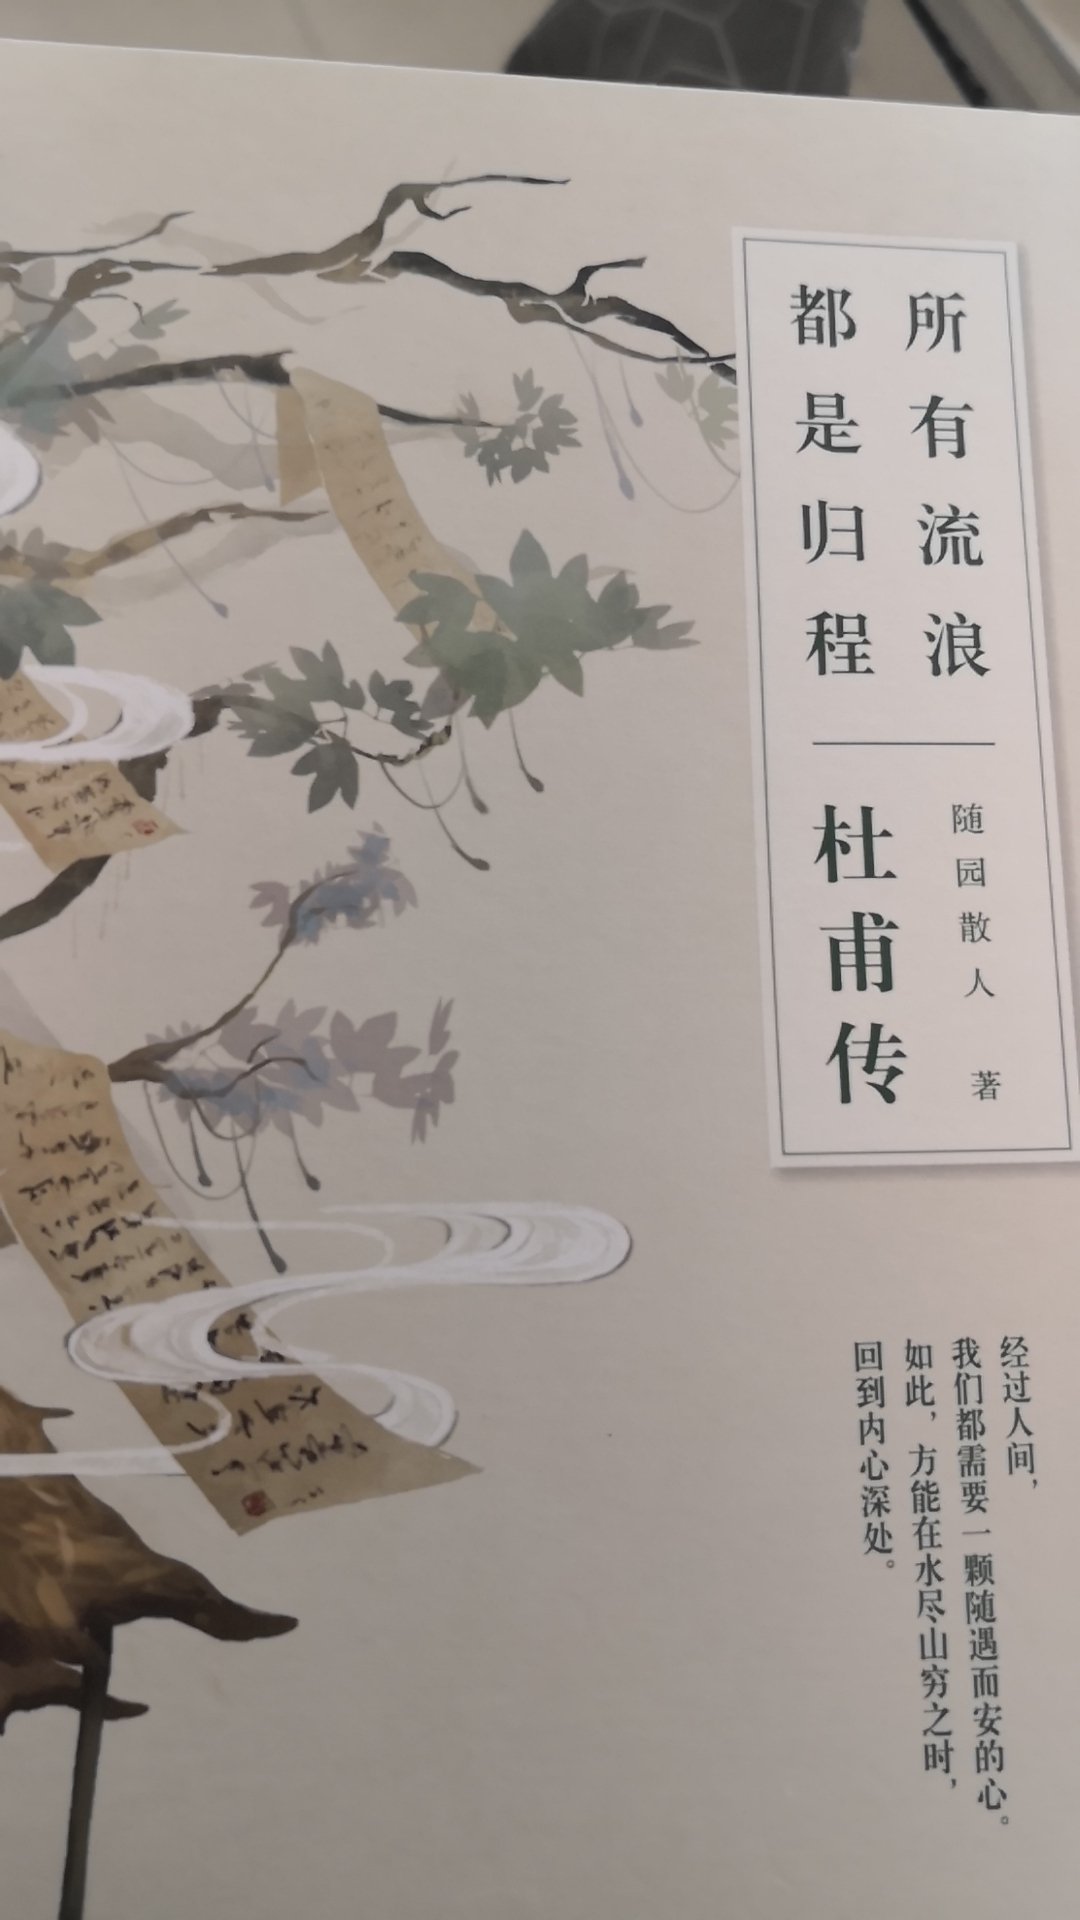 所有流浪
都是归程
随园散人 著
杜甫传
经过人间，
我们都需要一颗随遇而安的心。
如此，方能在水尽山穷之时，
回到内心深处。